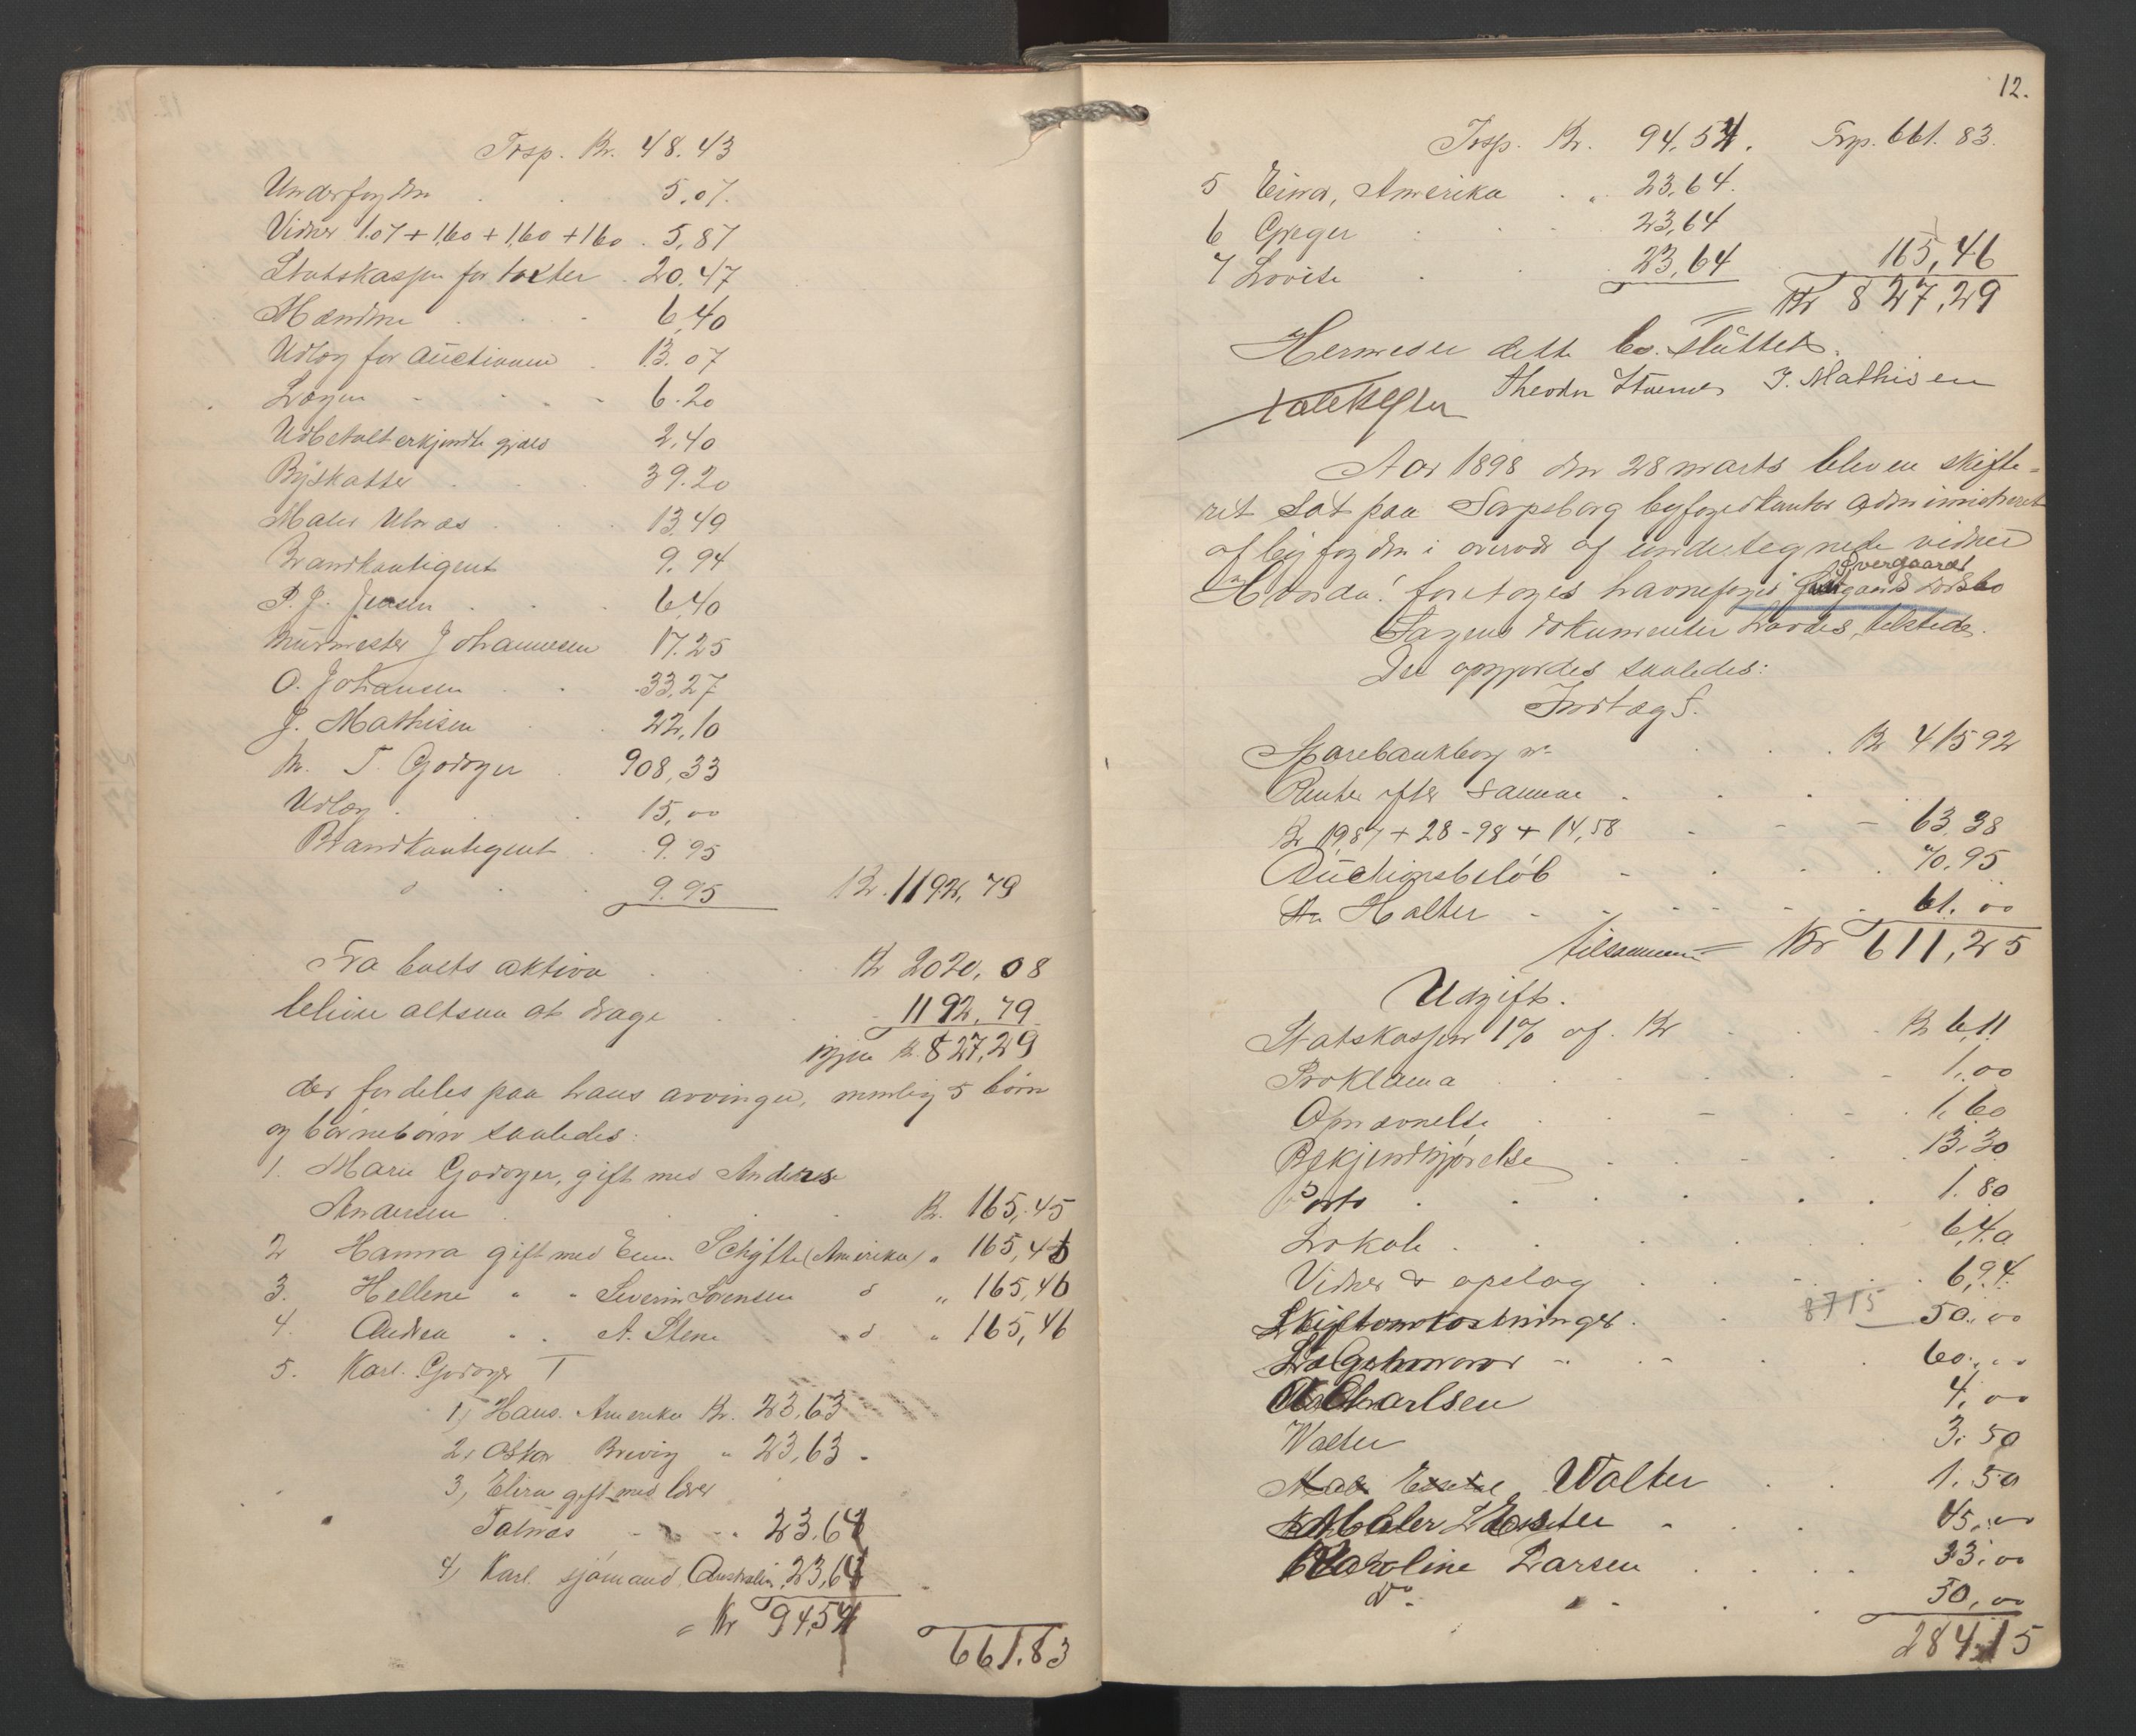 Trsp. Kr. 48.43
Underfogden 5.07.
Vidner 1.07 + 1,60 + 1,60 + 160 . 5,87
Statskassen for taxter 20.47
Mændene 6.40
Udlæg for auctionen 13.07
Lægen 6.20
Udbetalt erkjendte gjæld 2,40
Byskatter 39.20
Maler Ulnæs 13.49
Brandkontigent 9.94
P. J. Jensen 6,40
Murmester Johannesen 17.25
O. Johansen 33,27
J. Mathisen 22,10
Kr. T. Godøger 908,33
Udlæg 15,00
Brandkontigent 9.95
d 9.95 Kr. 1192,79
Fra boets aktiva Kr 2020,08
blive altsaa at drage 1192,79
igjen Kr. 827,29
der fordeles paa hans arvinger, nemlig 5 børn
og børnebørn saaledes:
1. Marie Godøger, gift med Anders
Andersen Kr. 165,45
2 Hanna gift med Schytte (Amerika) " 165,46
3. Hellene " " Severin Sørensen d " 165,46
4. Andrea " " A. Stene d " 165,46
5. Karl Godøger †
1, Hans. Amerika Kr. 23,63
2, Oskar Brevig " 23,63
3, Elise gift med
23.64
4, Karl. sjømand Australien 23,64
= Kr 94,54
661.83
12.
Trsp. Kr. 94,54. Trsp. 661.83.
5 Einar, Amerika " 23,64.
6 Greger 23,64
7 Lovise 23,64 165,46
Kr 827,29
Hermed er dette bo sluttet.
Theodor J. Mathisen
Aar 1898 den 28 marts blev en skifte-
ret sat paa Sarpsborg byfogedkontor administreret
af byfogden i overvær af undertegnede vidner
Overgaards
Hvorda! foretoges havnefoged dødsbo
Sagens dokumenter havdes tilstede.
Det opgjordes saaledes:
Indtægt.
Sparebankbog no Kr 415 92
Renter efter samme
Kr 19,87 + 28-98 + 14,58 63.38
Auctionsbeløb 70.95
Halter 61.00
tilsammen Kr 611,25
Udgift.
Statskassen 1% af Kr Kr 6,11
Proklama 1.00
Opnævnelse 1,60
Bekjendtgjørelse 13.30
Porto 1.80
Lokale 6,40
Vidner & opslag 6,94
Skifteomkostninger 8715 50.00
Salgshonorar 60.00
Charlsen 4,00
Walter 3.50
Walter 1.50
Maler 45,00
Karoline Larsen 33.00
Do 50,00
284.15